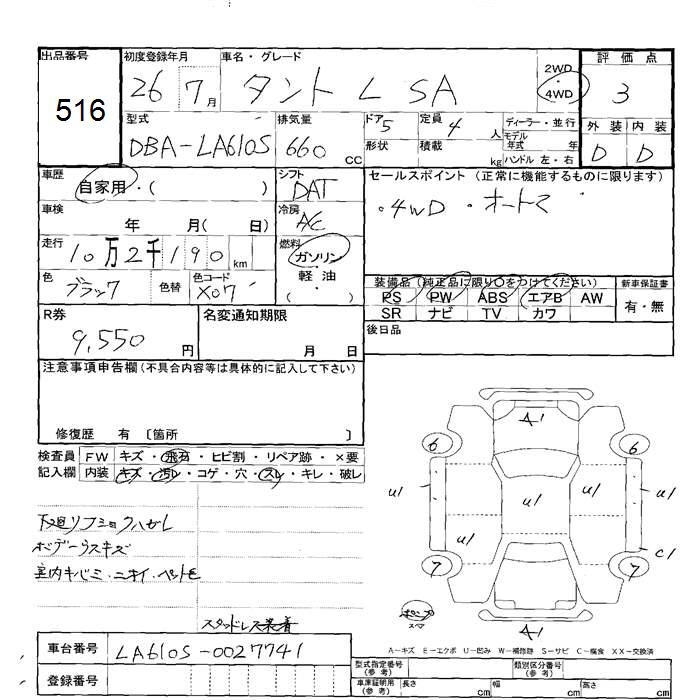 出品番号
516
初度登録年月
26 7月
車名・グレード
タント L SA
2WD
4WD
評価点
3
外装 内装
D D
型式
DBA-LA610S
排気量
660 cc
ドア 5
形状
定員 4 人
積載 kg
ディーラー・並行
モデル年式 年
ハンドル 左・右
車歴
自家用・( )
シフト
DAT
セールスポイント (正常に機能するものに限ります)
・4WD ・オートマ
車検
年 月( 日)
冷房
A/C
走行
10万2千190 km
燃料
ガソリン
軽油
( )
色
ブラック
色替
色コード
X07
装備品(純正品に限り○をつけてください)
PS PW ABS エアB AW
SR ナビ TV カワ
新車保証書
有・無
R券
9,550 円
名変通知期限
月 日
後日品
注意事項申告欄(不具合内容等は具体的に記入して下さい)
修復歴 有 〔箇所 〕
検査員
記入欄
FW キズ・飛石・ヒビ割・リペア跡・×要
内装 キズ・汚レ・コゲ・穴・スレ・キレ・破レ
ボデーウスキズ
室内キバミ・ニオイ・ペット毛
スタッドレス装着
A1
6 6
u1 u1 u1 u1
u1 c1
7 7
A1
スマ
A-キズ E-エクボ U-凹み W-補修跡 S-サビ C-腐食 XX-交換済
車台番号
LA610S-0027741
登録番号
型式指定番号
(参考)
類別区分番号
(参考)
車庫証明用
(参考)
長さ cm 幅 cm 高さ cm